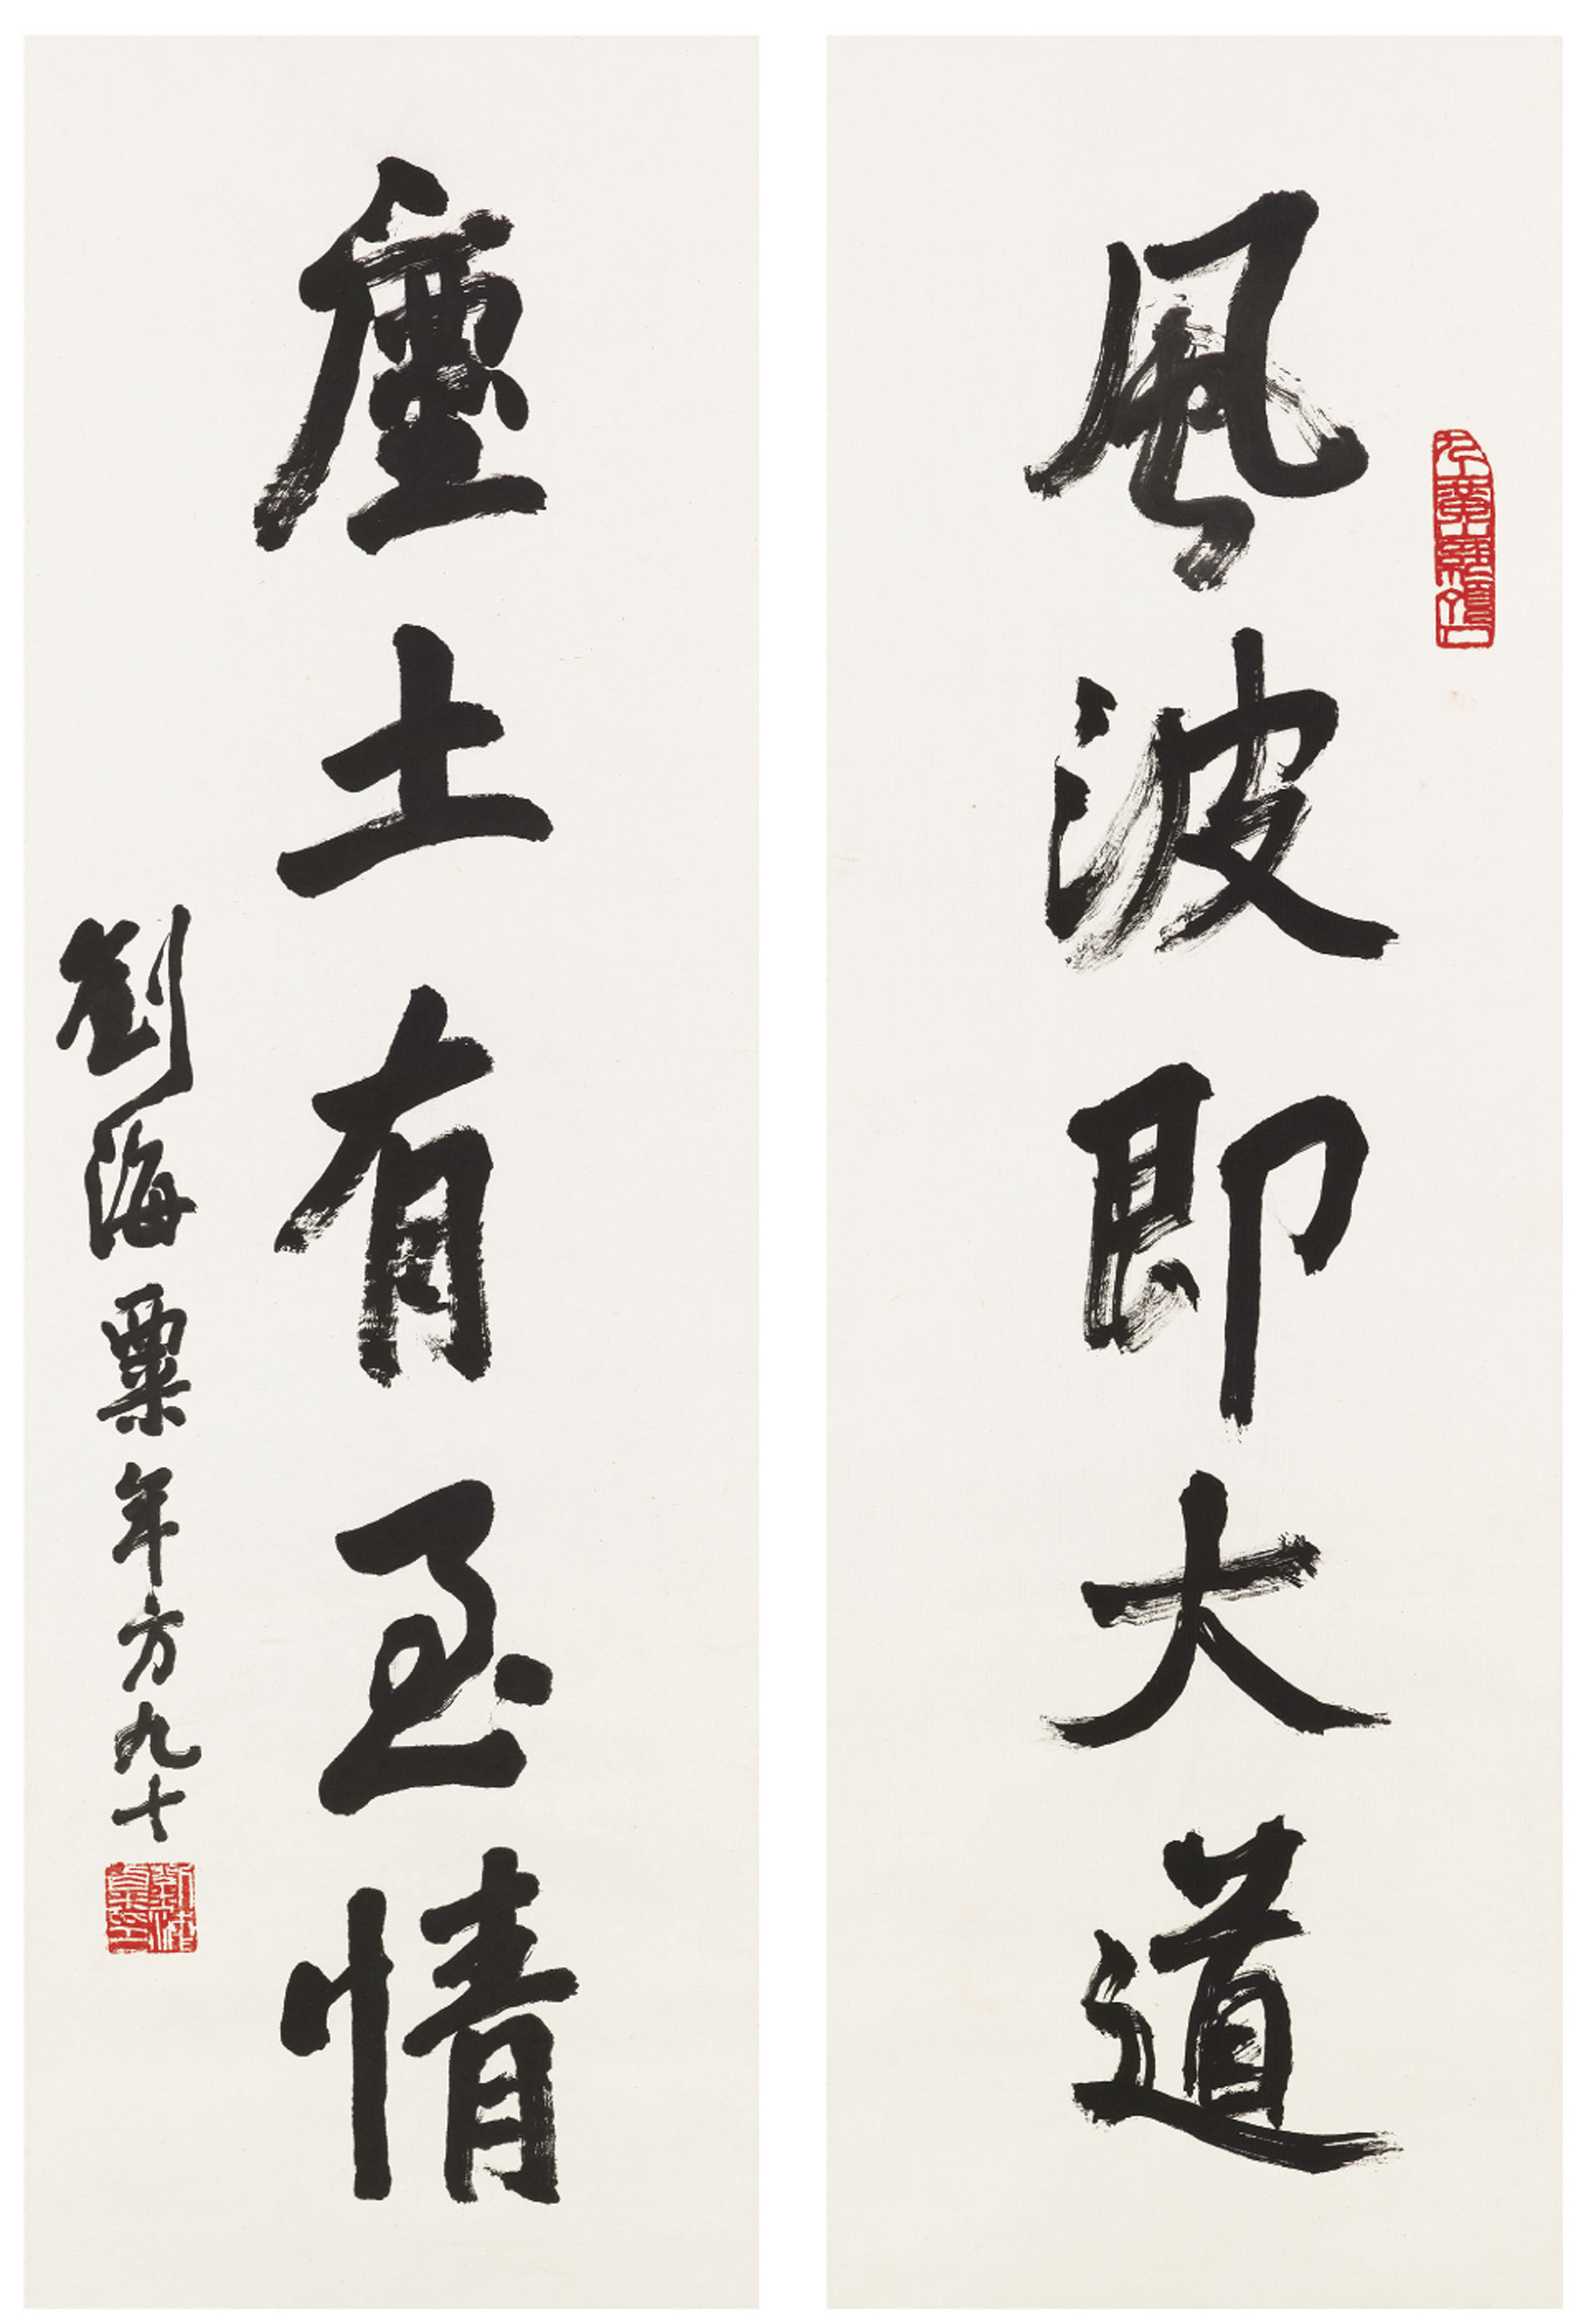 風波即大道
塵土有至情
劉海粟年方九十